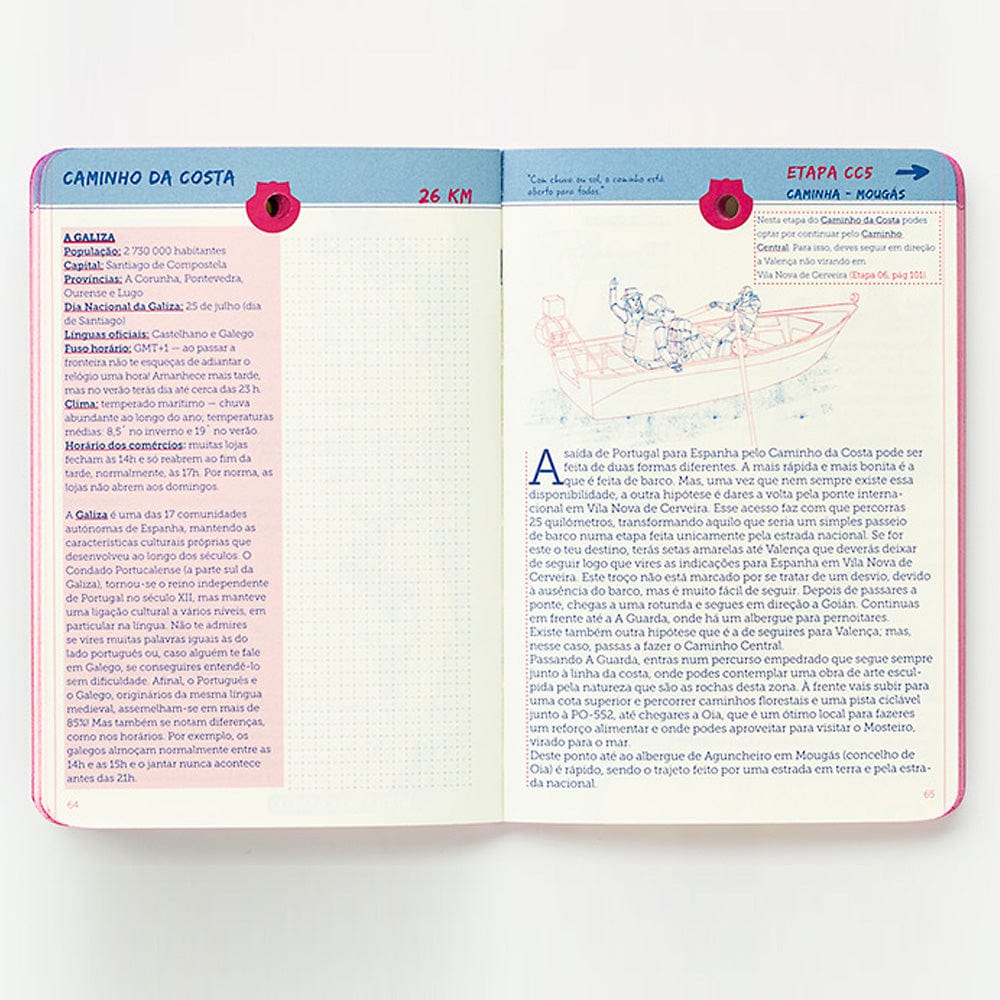 CAMINHO DA COSTA
26 KM
A GALIZA
População: 2 730 000 habitantes
Capital: Santiago de Compostela
Províncias: A Corunha, Pontevedra,
Ourense e Lugo
Dia Nacional da Galiza: 25 de julho (dia
de Santiago)
Línguas oficiais: Castelhano e Galego
Fuso horário: GMT+1 — ao passar a
fronteira não te esqueças de adiantar o
relógio uma hora! Amanhece mais tarde,
mas no verão terás dia até cerca das 23 h.
Clima: temperado marítimo — chuva
abundante ao longo do ano; temperaturas
médias: 8,5˚ no inverno e 19˚ no verão.
Horário dos comércios: muitas lojas
fecham às 14h e só reabrem ao fim da
tarde, normalmente, às 17h. Por norma, as
lojas não abrem aos domingos.
A Galiza é uma das 17 comunidades
autónomas de Espanha, mantendo as
características culturais próprias que
desenvolveu ao longo dos séculos. O
Condado Portucalense (a parte sul da
Galiza), tornou-se o reino independente
de Portugal no século XII, mas manteve
uma ligação cultural a vários níveis, em
particular na língua. Não te admires
se vires muitas palavras iguais às do
lado português ou, caso alguém te fale
em Galego, se conseguires entendê-lo
sem dificuldade. Afinal, o Português e
o Galego, originários da mesma língua
medieval, assemelham-se em mais de
85%! Mas também se notam diferenças,
como nos horários. Por exemplo, os
galegos almoçam normalmente entre as
14h e as 15h e o jantar nunca acontece
antes das 21h.
64
"Com chuva ou sol, o caminho está
aberto para todos."
ETAPA CC5
CAMINHA - MOUGÁS
Nesta etapa do Caminho da Costa podes
optar por continuar pelo Caminho
Central. Para isso, deves seguir em direção
a Valença não virando em
Vila Nova de Cerveira (Etapa 06, pág 101).
A saída de Portugal para Espanha pelo Caminho da Costa pode ser
feita de duas formas diferentes. A mais rápida e mais bonita é a
que é feita de barco. Mas, uma vez que nem sempre existe essa
disponibilidade, a outra hipótese é dares a volta pela ponte interna-
cional em Vila Nova de Cerveira. Esse acesso faz com que percorras
25 quilómetros, transformando aquilo que seria um simples passeio
de barco numa etapa feita unicamente pela estrada nacional. Se for
este o teu destino, terás setas amarelas até Valença que deverás deixar
de seguir logo que vires as indicações para Espanha em Vila Nova de
Cerveira. Este troço não está marcado por se tratar de um desvio, devido
à ausência do barco, mas é muito fácil de seguir. Depois de passares a
ponte, chegas a uma rotunda e segues em direção a Goián. Continuas
em frente até a A Guarda, onde há um albergue para pernoitares.
Existe também outra hipótese que é a de seguires para Valença; mas,
nesse caso, passas a fazer o Caminho Central.
Passando A Guarda, entras num percurso empedrado que segue sempre
junto à linha da costa, onde podes contemplar uma obra de arte escul-
pida pela natureza que são as rochas desta zona. À frente vais subir para
uma cota superior e percorrer caminhos florestais e uma pista ciclável
junto à PO-552, até chegares a Oia, que é um ótimo local para fazeres
um reforço alimentar e onde podes aproveitar para visitar o Mosteiro,
virado para o mar.
Deste ponto até ao albergue de Aguncheiro em Mougás (concelho de
Oia) é rápido, sendo o trajeto feito por uma estrada em terra e pela estra-
da nacional.
65